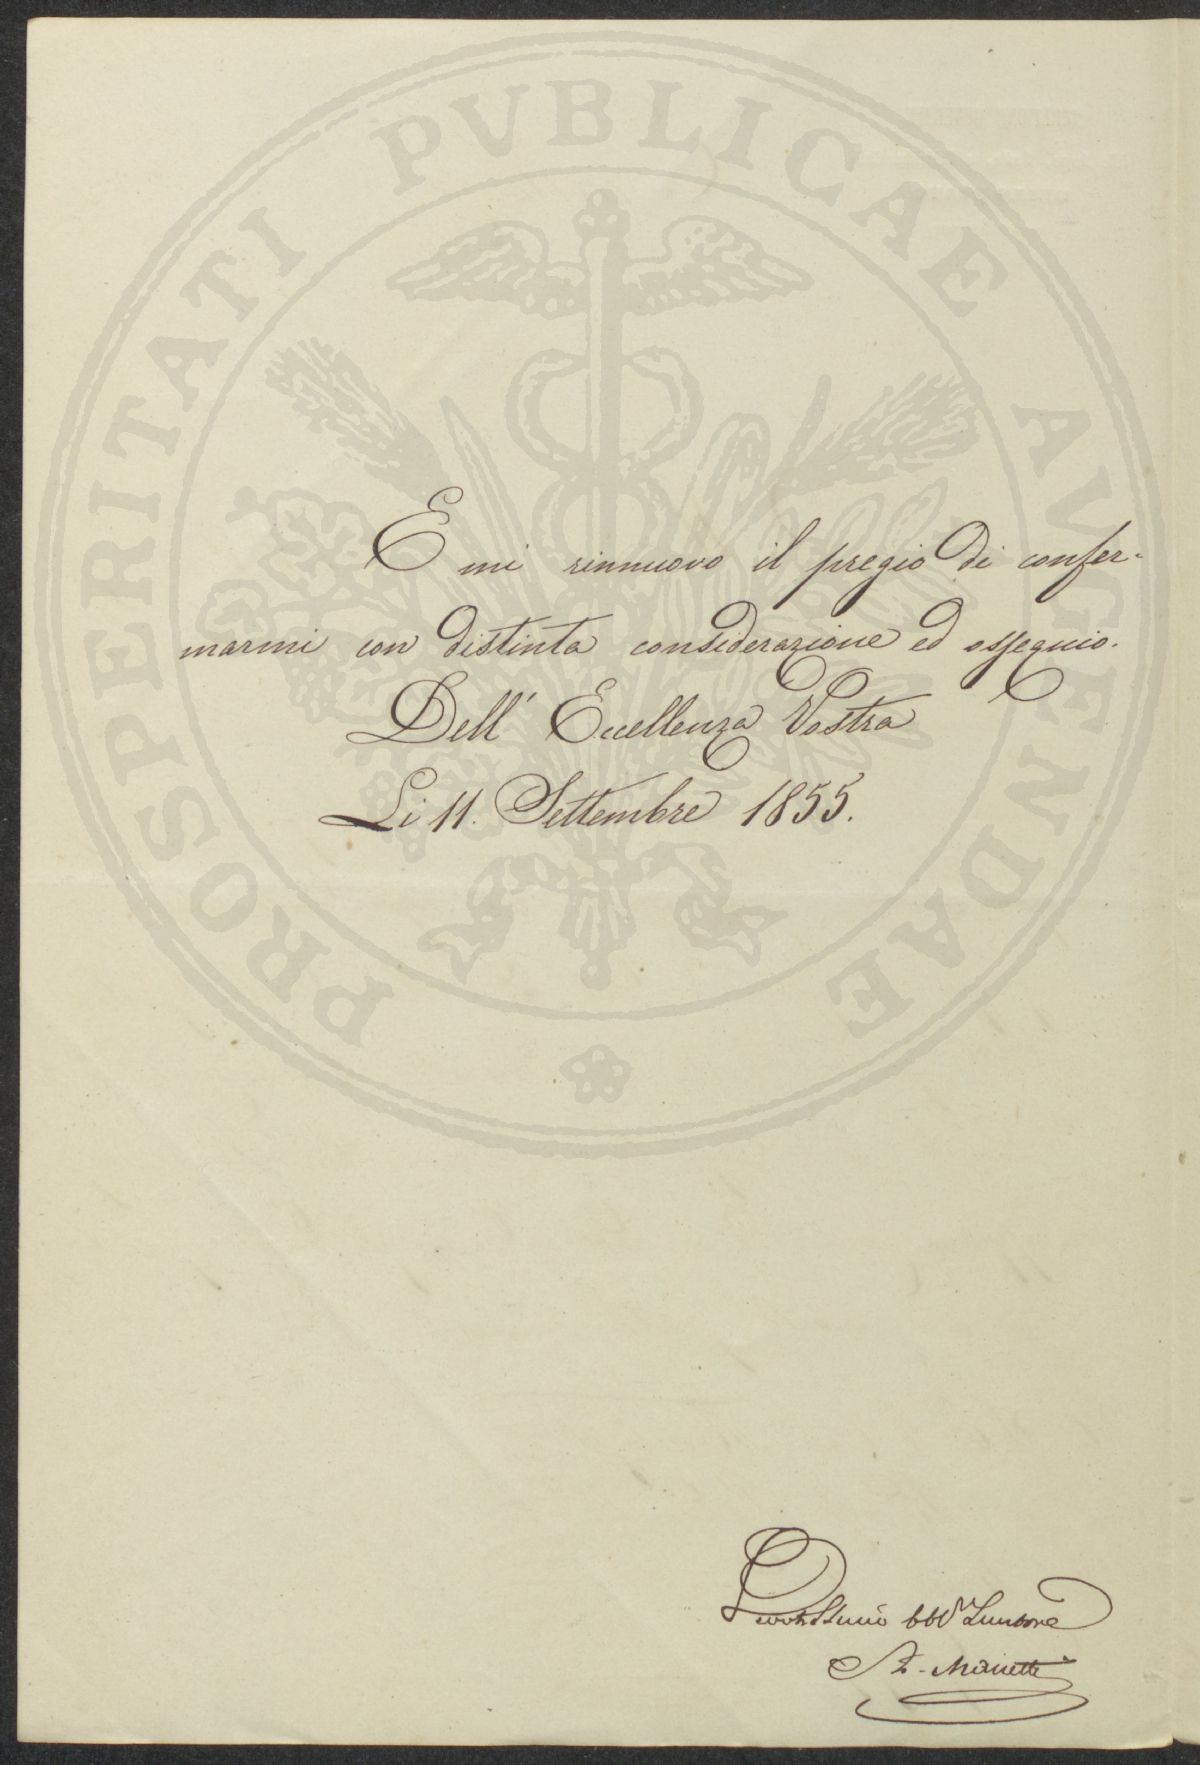 PROSPERITATI PVBLICAE AVGENDAE
E mi rinnuovo il pregio di confer-
marmi con distinta considerazione ed ossequio.
Dell' Eccellenza Vostra
Li 11. Settembre 1855.
A. Manetti